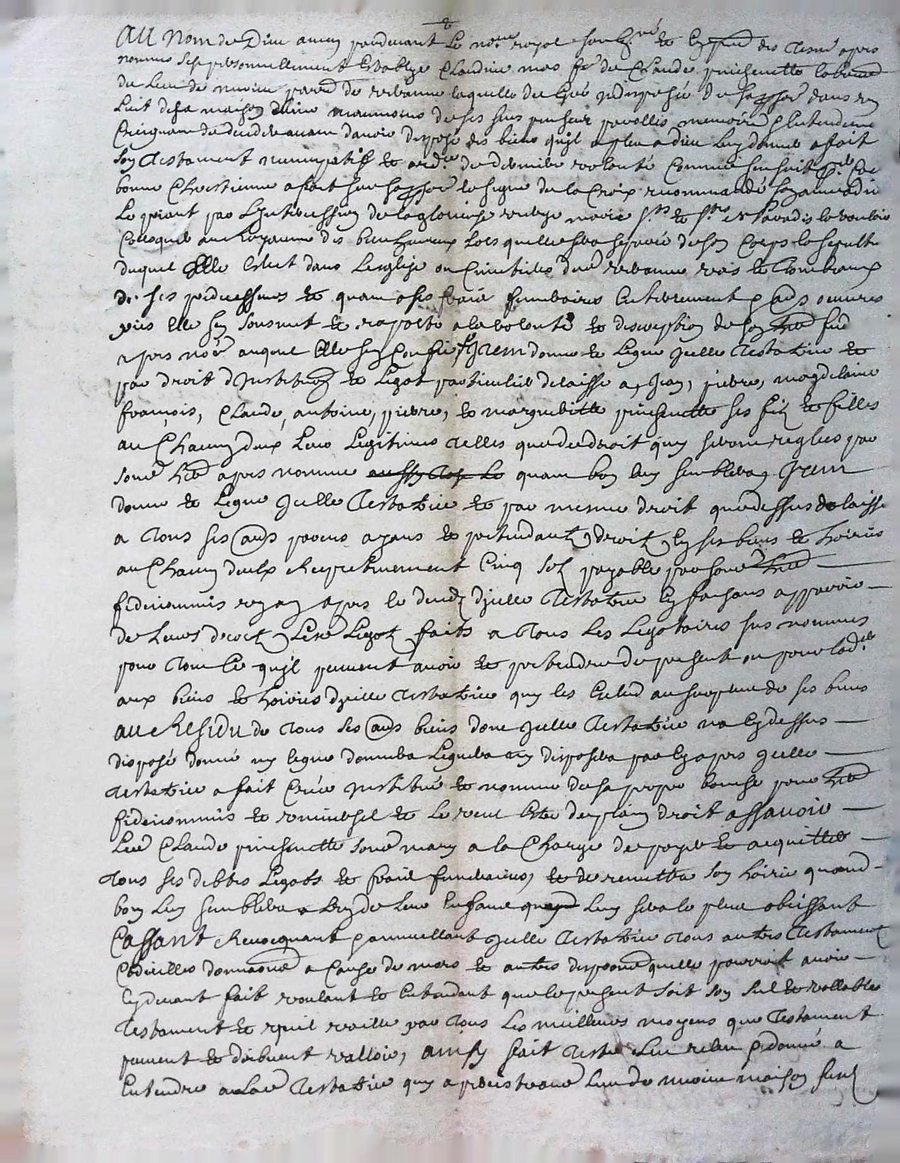 AU Nom de Dieu amen pardevant Le no.re royal sousig.né et en p.nce des tesm. apres
nommes sest personnellement establye Claudine mas fe de Claude pinchenette laboureur
du Lieu de parr.e de laquelle de gré indisposée de sa personne dans son
Lict de sa maison d'icy neanmoins de ses sens penseés parolles, memoire & entendem.t
Craignant de deceder avant davoir disposé des biens quil a pleu a dieu Luy donner a fait
son testament nuncupatif et ord.ce de derniere volonté Comme sensuit
bonne Chrestienne a fait sur sa personne le signe de la Croix recommandé son ame a dieu
Le priant par Lintercession de la glorieuse vierge marie s.ts et s.tes de Paradis la vouloir
Colloquer au Royaume des bienheureux Lors quelle sera separée de son Corps la sepulture
duquel Elle Eslit dans Leglise ou Cimitiere dud vers le Tombeaux
de ses predecesseurs et quant a ses frais funeraires Enterrement & ad.s oeuvres
pies elle sen soumet et raporte a la volonté et discretion de son her fid
apres no.é auquel Elle sen Confie, Item donne et Legue Jcelle testatrice et
par droit d'Institu.on et Legat particulier delaisse a Jean, pierre, magdelaine
francois, Claude, antoine, pierre, et marguerite pinchenette ses fils et filles
au Chacun deux Leur Legitime telles que de droit quy seront reglées par
son.d her.er apres nomme quant bon luy semblera, Item
donne et Legue Jcelle testatrice et par mesme droit que dessus delaisse
a tous ses autres parens ayans et pretendants droits En ses biens et hoirie
au Chacun deulx respectivement Cinq sols payable par son.d her.er
fideicommis un an apres le deceds dicelle testatrice Les faisans apparoir
de leurs droits, Lesd Legats faits a tous Les Legataires sus nommes
pour tout Ce quil peuvent avoir et pretendre de present ou pour lad.r
aux biens et hoiries dicelle testatrice quy les Exclud au surplus de ses biens
AU RESIDU de tous ses autres biens dont Jcelle testatrice na Cy dessus
disposé donné ny legué donnera Leguera ny disposera par Cy apres Jcelle
testatrice a fait Creé Institué et nomme de sa propre bouche pour her.er
fideicommis et universel et Le veut Estre de plain droit assavoir
Led Claude pinchenette son.d mary a la Charge de payer et acquitter
tous ses debtes Legats et frais funeraires, et de remettre son hoirie quand
bon Luy semblera a Lun de Leur Enfans quand Luy sera le plus obeissant
CASSANT Revocquant & annullant Jcelle testatrice tous autres testament
Codicilles donnations a Cause de mort et autres disposi.ons quelle pourroit avoir
Cy devant fait voulant et Entendant que le present soit son seul et vallable
testament et quil vaille par tous Les meilleurs moyens que testament
peuvent et doibvent valloir, ainsy fait testé Leu releu & donné a
Entendre a lad testatrice quy a Lieu de maison